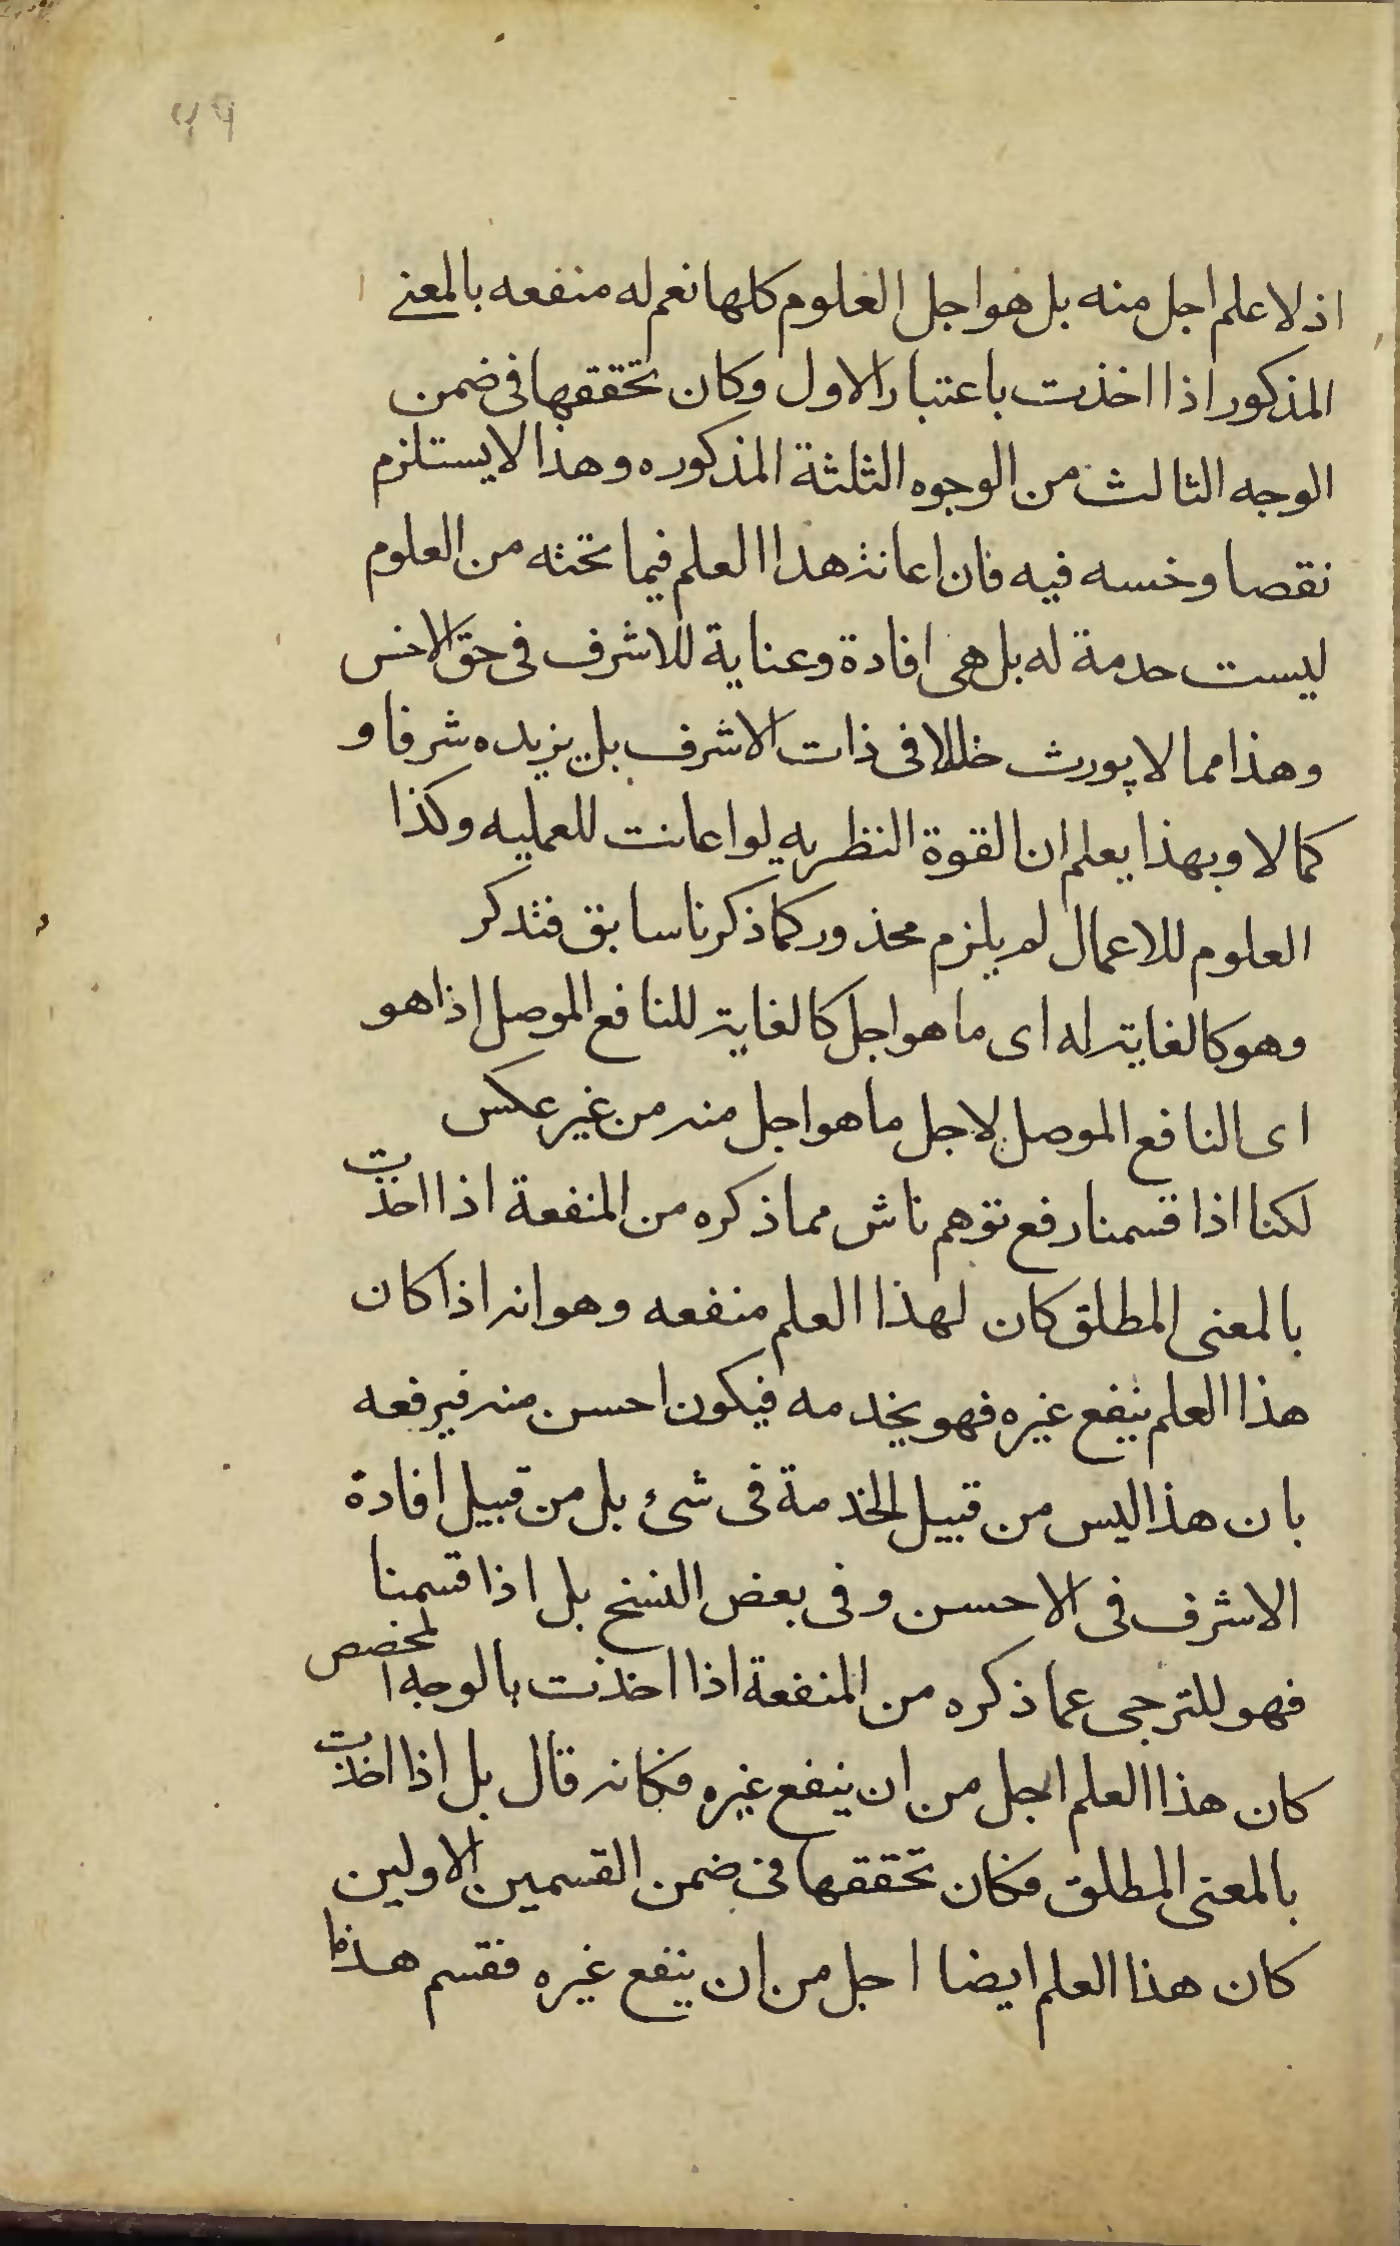 ۴۹
اذ لا علم اجل منه بل هو اجل العلوم كلها نعم له منفعه بالمعنى
المذكور اذا اخذت باعتبار الاول وكان تحققها فى ضمن
الوجه الثالث من الوجوه الثلثة المذكوره وهذا لا يستلزم
نقصا وخسه فيه فان اعانة هذا العلم فيما تحته من العلوم
ليست حدمة له بل هى افادة وعناية للاشرف فى حق الاخس
وهذا مما لا يورث خللا فى ذات الاشرف بل يزيده شرفا و
كمالا وبهذا يعلم ان القوة النظريه لو اعانت للعمليه وكذا
العلوم للاعمال لم يلزم محذور كما ذكرنا سابق فتدكر
وهو كالغاية له اى ما هو اجل كالغاية للنافع الموصل اذا هو
اى النافع الموصل لاجل ما هو اجل منه من غير عكس
لكنا اذا قسمنا رفع توهم ناش مما ذكره من المنفعة اذا اخذت
بالمعنى المطلق كان لهذا العلم منفعه وهو انه اذا كان
هذا العلم ينفع غيره فهو يخدمه فيكون احسن منه فيرفعه
بان هذا ليس من قبيل الخدمة فى شئ بل من قبيل افادة
الاشرف فى الاحسن وفى بعض النسخ بل اذا قسمنا
فهو للترجى عما ذكره من المنفعة اذا اخذت بالوجه المخصص
كان هذا العلم اجل من ان ينفع غيره فكانه قال بل اذا اخذت
بالمعنى المطلق فكان تحققها فى ضمن القسمين الاولين
كان هذا العلم ايضا اجل من ان ينفع غيره فقسم هذا